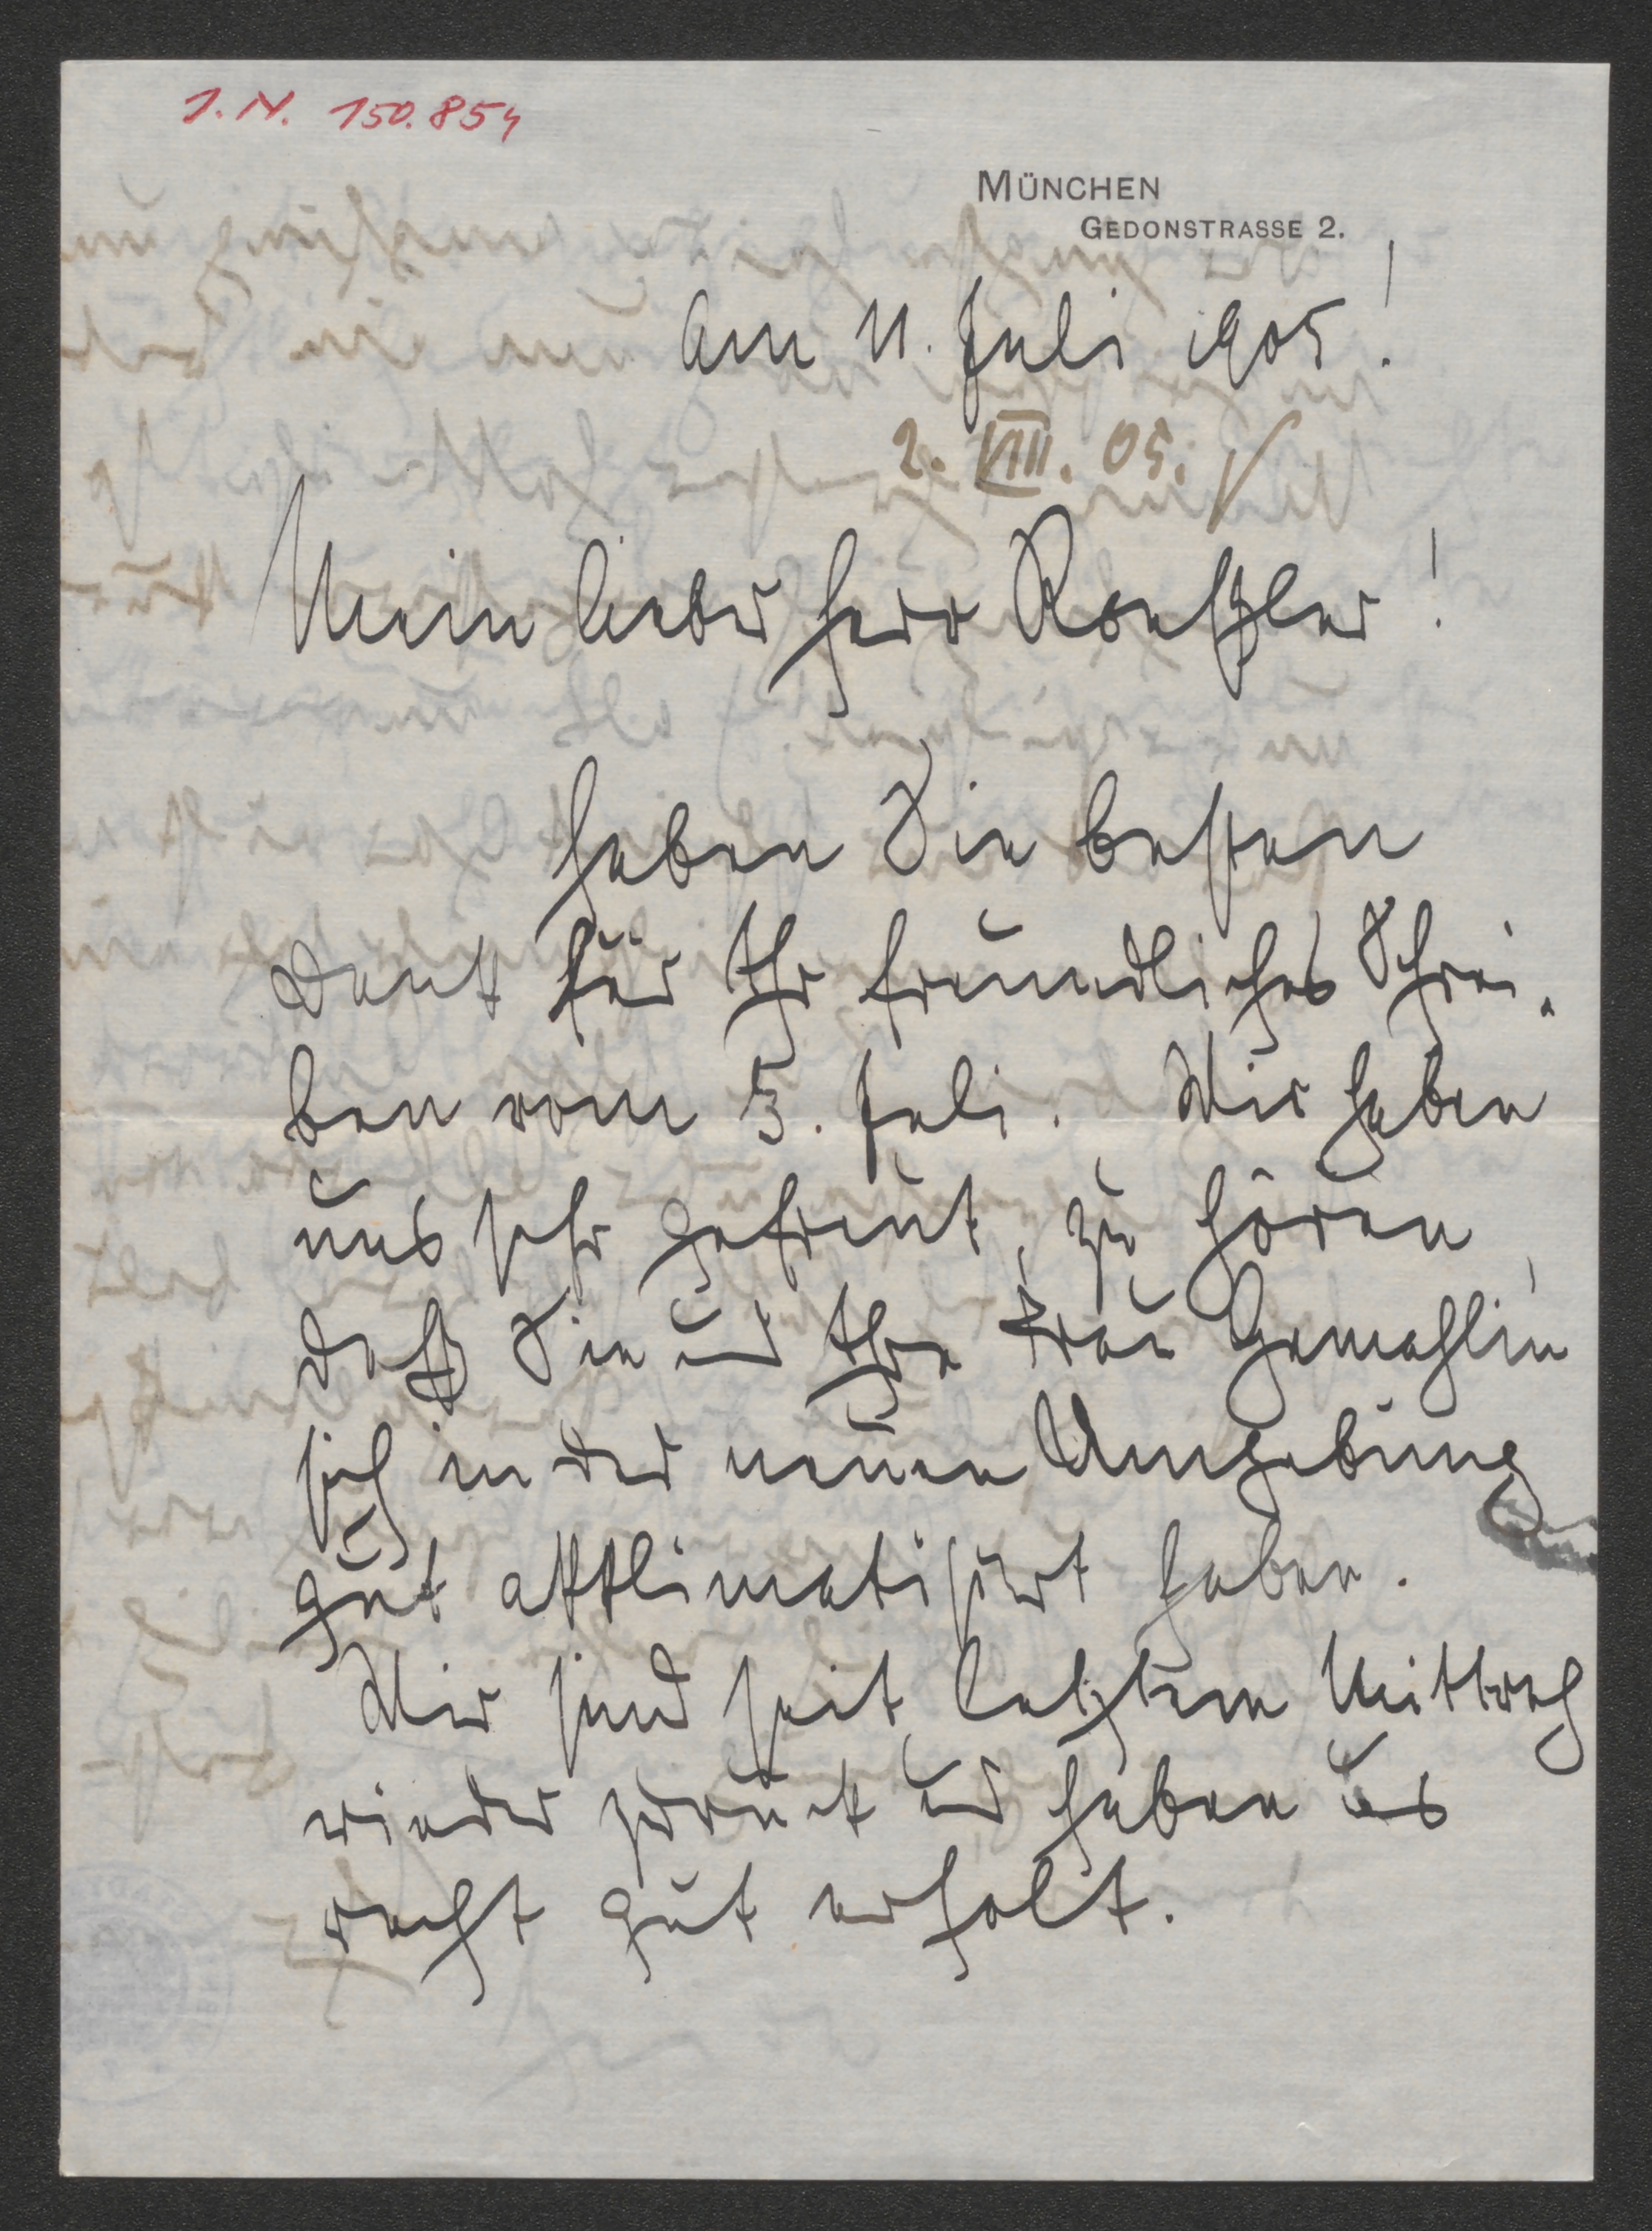 I.N. 150.854
MÜNCHEN
GEDONSTRASSE 2.
Am 11. Juli 1905!
2. VIII. 05. √
Mein lieber Herr Roeßler!
Haben Sie besten
Dank für Ihr freundliches Schrei-
ben vom 5. Juli. Wir haben
uns sehr gefreut, zu hören,
daß Sie und Ihre Frau Gemahlin
sich in der neuen Umgebung
gut akklimatisirt haben.
Wir sind seit letztem Mittwoch
wieder zurück und haben uns
recht gut erholt.